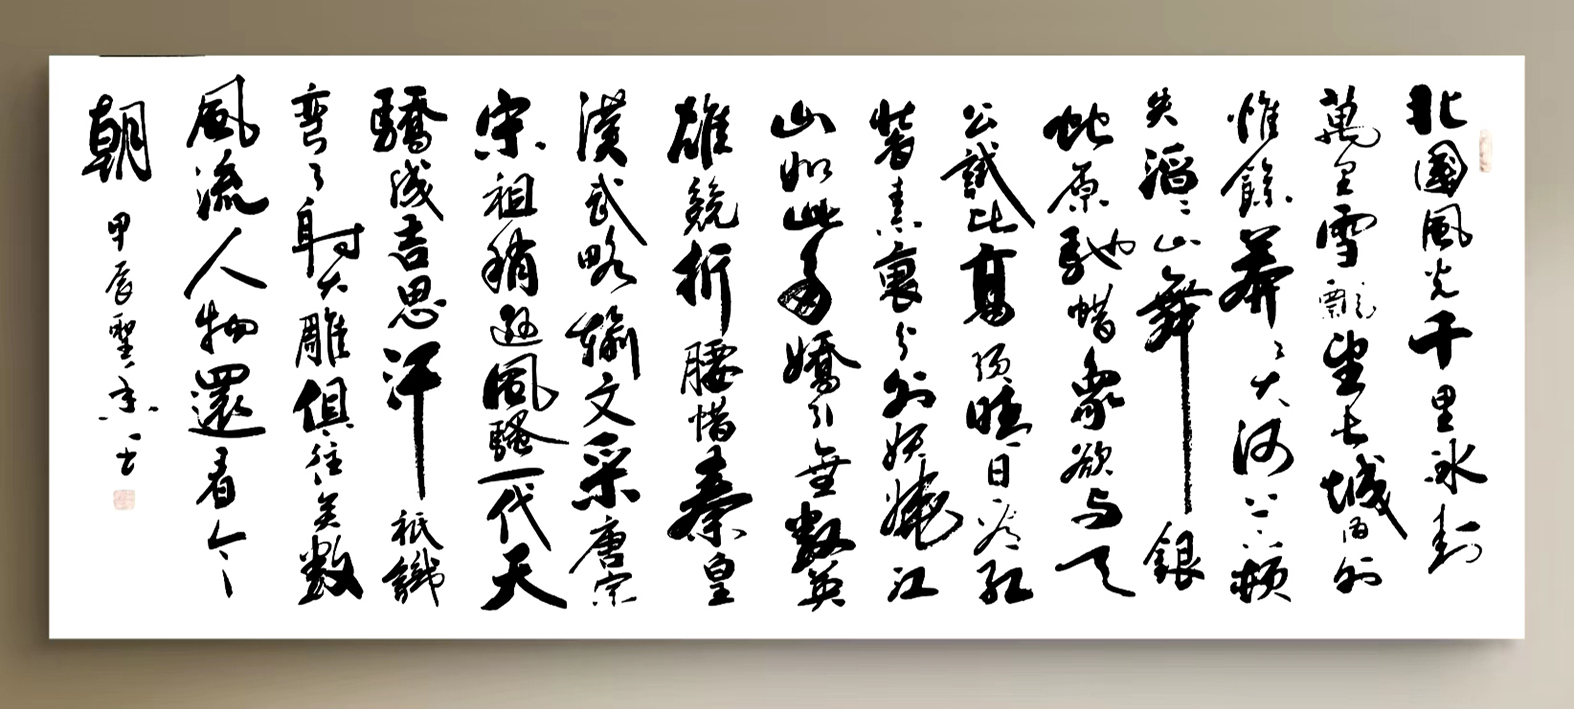 北國風光千里冰封
萬里雪飄望長城內外
惟餘莽〻大河上下頓
失滔〻山舞銀
蛇原馳蜡象欲与天
公試比高須晴日看紅
裝素裹分外妖嬈江
山如此多嬌引無數英
雄競折腰惜秦皇
漢武略輸文采唐宗
宋祖稍遜風騷一代天
驕成吉思汗祇識
彎弓射大雕俱往矣數
風流人物還看今
朝
甲辰